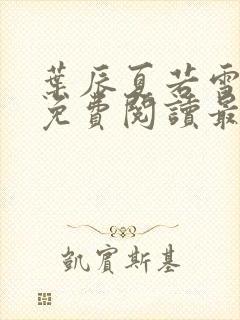 葉辰夏若雪
免費閱讀最
凱賓斯基